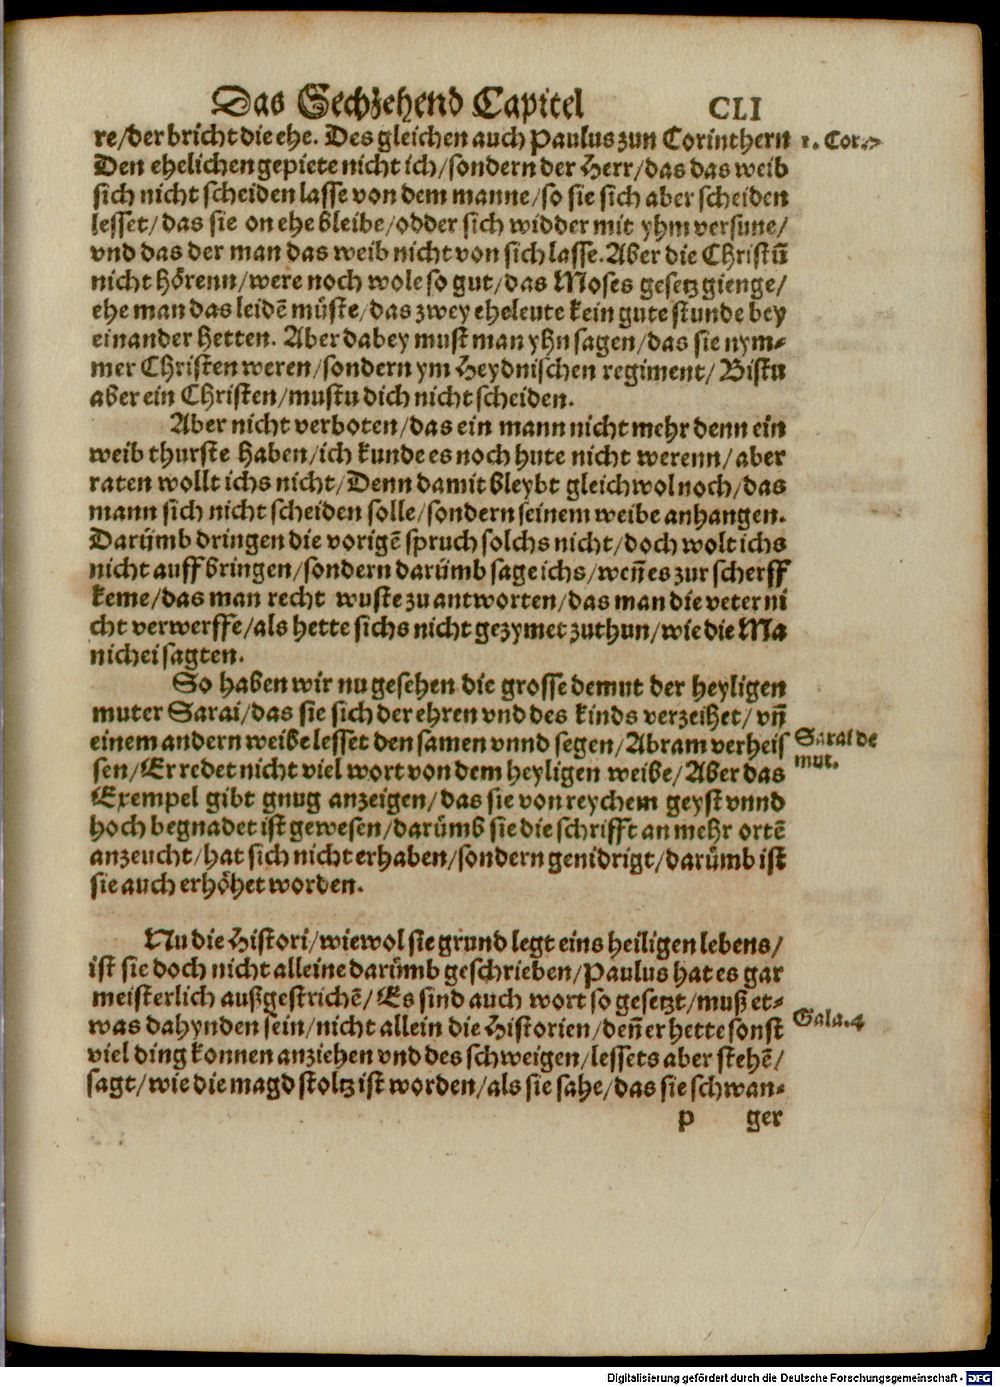 Das Sechzehend Capitel CLI
re/der bricht die ehe. Des gleichen auch Paulus zun Corinthern 1. Cor. 7
Den ehelichen gepiete nicht ich/sondern der Herr/das das weib
sich nicht scheiden lasse von dem manne/so sie sich aber scheiden
lesset/das sie on ehe bleibe/odder sich widder mit yhm versune/
vnd das der man das weib nicht von sich lasse. Aber die Christū
nicht hörenn/were noch wole so gut/das Moses gesetz gienge/
ehe man das leidē müste/das zwey eheleute kein gute stunde bey
einander hetten. Aber dabey must man yhn sagen/das sie nym-
mer Christen weren/sondern ym Heydnischen regiment/Bistu
aber ein Christen/mustu dich nicht scheiden.
Aber nicht verboten/das ein mann nicht mehr denn ein
weib thurste haben/ich kunde es noch hute nicht werenn/aber
raten wollt ichs nicht/Denn damit bleybt gleichwol noch/das
mann sich nicht scheiden solle/sondern seinem weibe anhangen.
Darümb dringen die vorigē spruch solchs nicht/doch wolt ichs
nicht auffbringen/sondern darümb sage ichs/weñ es zur scherff
keme/das man recht wuste zu antworten/das man die veter ni
cht verwerffe/als hette sichs nicht gezymet zuthun/wie die Ma
nichei sagten.
So haben wir nu gesehen die grosse demut der heyligen
muter Sarai/das sie sich der ehren vnd des kinds verzeihet/vñ
einem andern weibe lesset den samen vnnd segen/Abram verheis
Sarai de
mut.
sen/Er redet nicht viel wort von dem heyligen weibe/Aber das
Exempel gibt gnug anzeigen/das sie von reychem geyst vnnd
hoch begnadet ist gewesen/darümb sie die schrifft an mehr ortē
anzeucht/hat sich nicht erhaben/sondern genidrigt/darümb ist
sie auch erhöhet worden.
Nu die Histori/wiewol sie grund legt eins heiligen lebens/
ist sie doch nicht alleine darümb geschrieben/Paulus hat es gar
meisterlich außgestrichē/Es sind auch wort so gesetzt/muß et-
was dahynden sein/nicht allein die Historien/deñ er hette sonst Gala. 4
viel ding konnen anziehen vnd des schweigen/lessets aber stehē/
sagt/wie die magd stoltz ist worden/als sie sahe/das sie schwan-
p ger
Digitalisierung gefördert durch die Deutsche Forschungsgemeinschaft - DFG